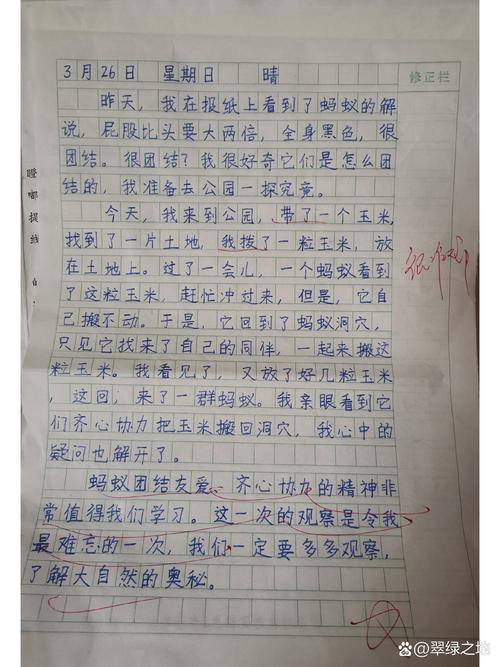 3月26日 星期日 晴
修正栏
昨天，我在报纸上看到了蚂蚁的解
说，屁股比头要大两倍，全身黑色，很
团结。很团结？我很好奇它们是怎么团
结的，我准备去公园一探究竟。
今天，我来到公园，带了一个玉米，
找到了一片土地，我拨了一粒玉米，放
在土地上。过了一会儿，一个蚂蚁看到
了这粒玉米，赶忙冲过来，但是，它自
己搬不动。于是，它回到了蚂蚁洞穴，
只见它找来了自己的同伴，一起来搬这
粒玉米。我看见了，又放了好几粒玉米，
这回，来了一群蚂蚁。我亲眼看到它
们齐心协力把玉米搬回洞穴，我心中的
疑问也解开了。
蚂蚁团结友爱、齐心协力的精神非
常值得我们学习。这一次的观察是令我
最难忘的一次，我们一定要多多观察，
了解大自然的奥秘。
瞪嘟提线
百度 @翠绿之地